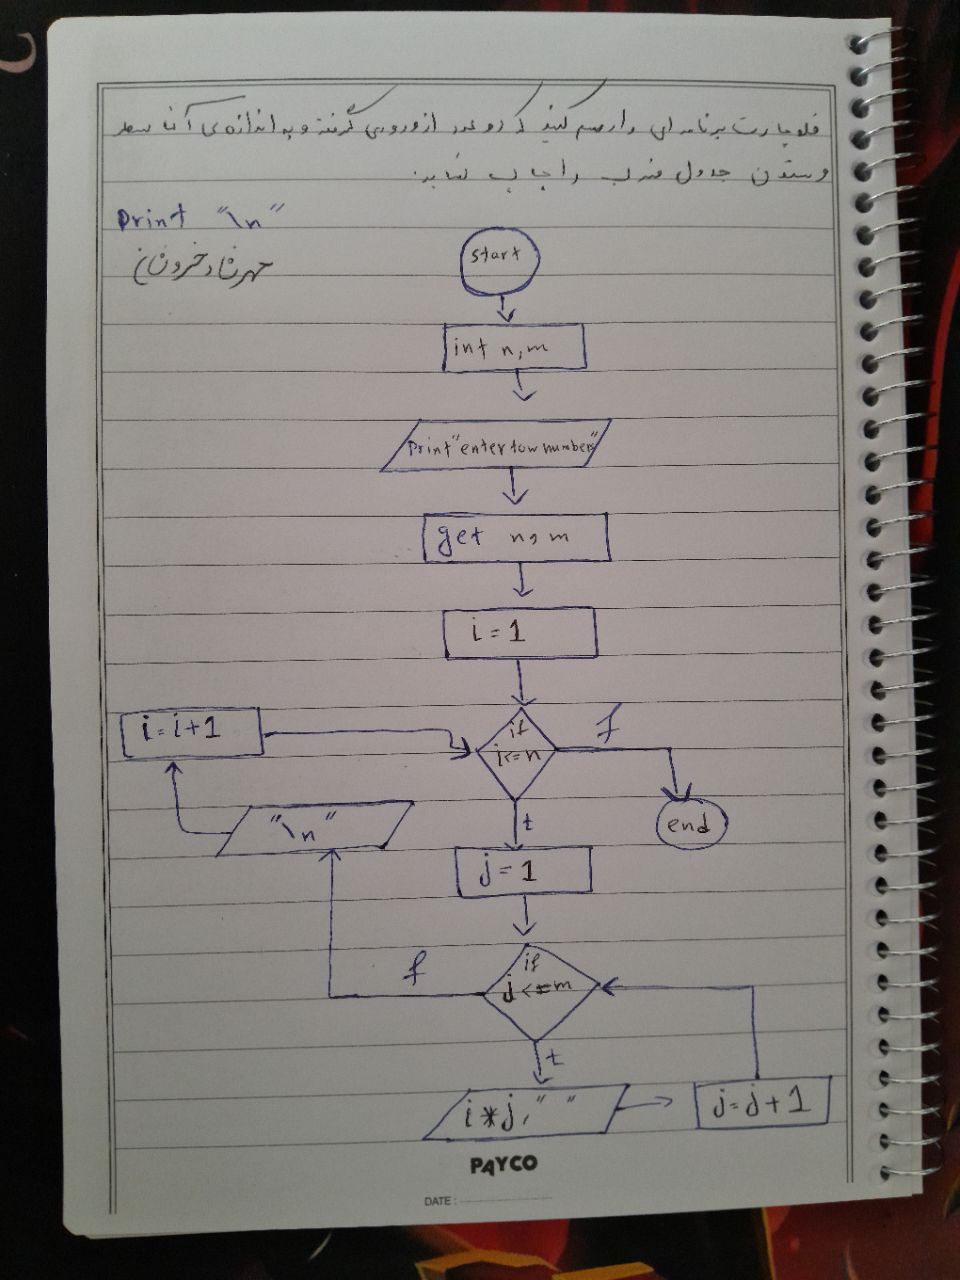 فلوچارت برنامه ای را رسم کنید که دو عدد از ورودی گرفته و به اندازه ی آنها سطر
و ستون جدول ضرب را چاپ نماید.
Print "\n"
start
int n,m
Print "enter tow numbers"
get n, m
i = 1
i = i+1
if
i<=n
f
"\n"
t
end
j = 1
f
if
j <= m
t
i * j, " "
j = j + 1
PAYCO
DATE :